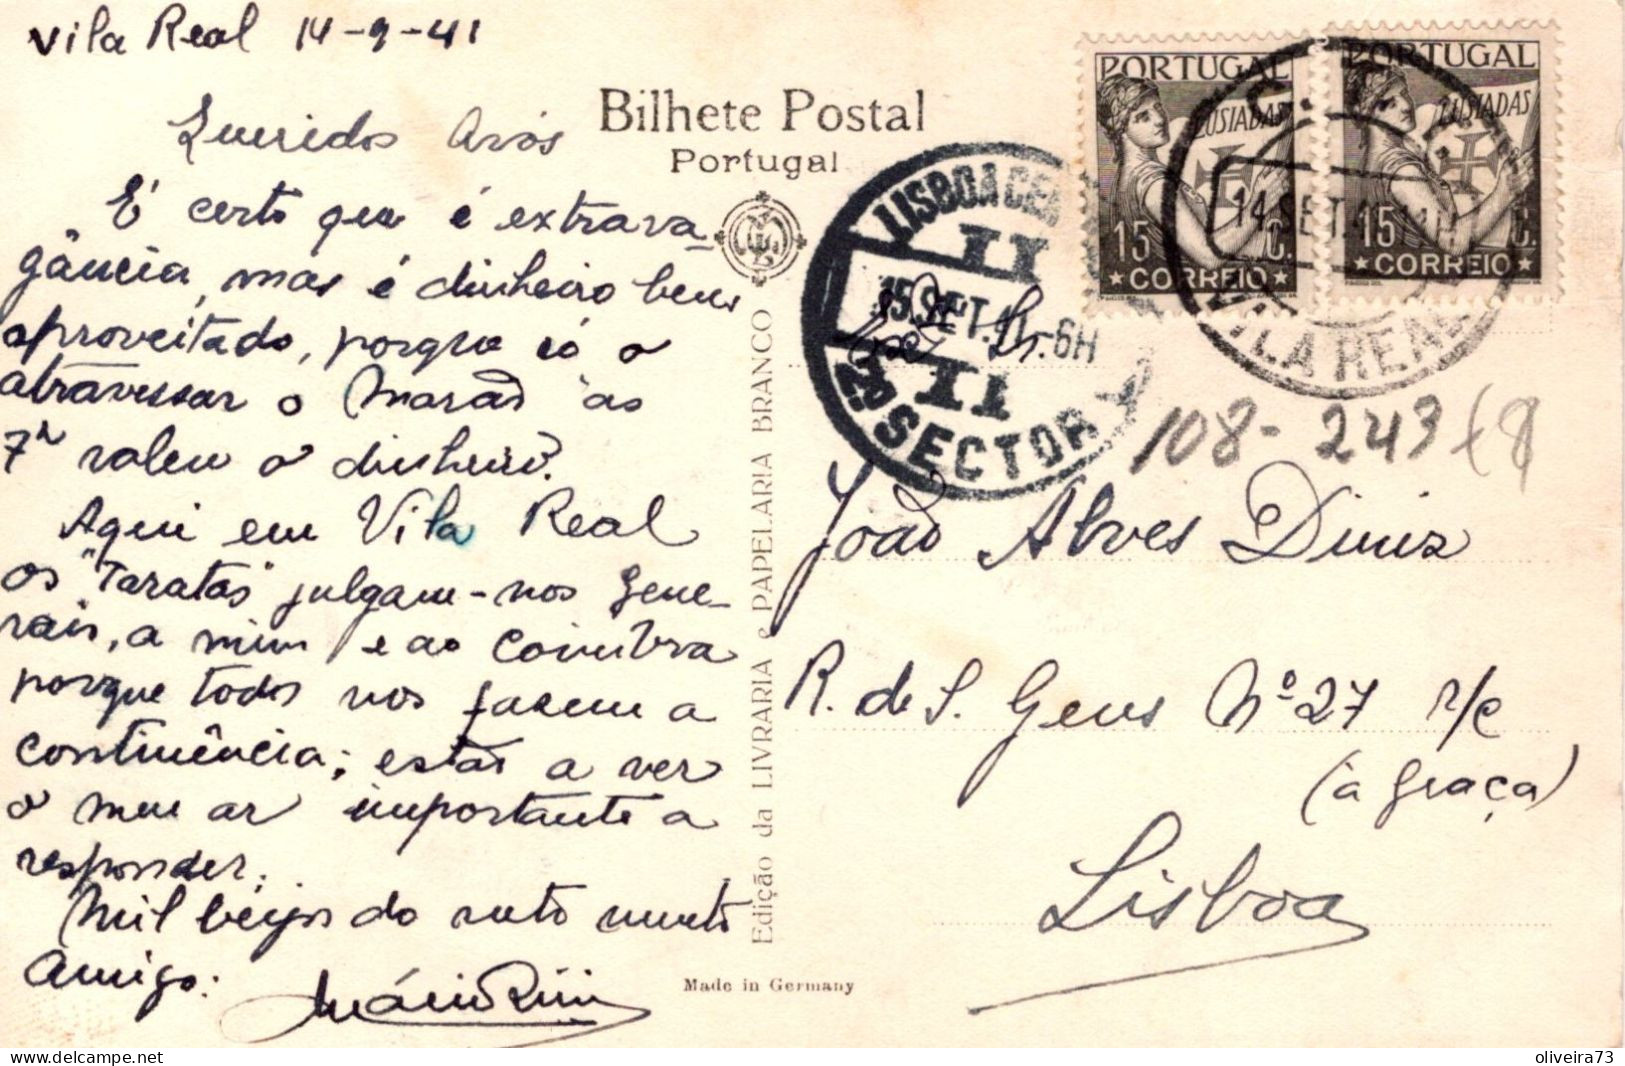 Vila Real 14-9-41
Queridos Avós
É certo que é extrava-
gância, mas é dinheiro bem
aproveitado, porque só o
atravessar o Marão às
7h valeu o dinheiro.
Aqui em Vila Real
os "Taratas" julgam-nos Gene-
rais, a mim e ao Coimbra
porque todos nos fazem a
continência; estás a ver
o meu ar importante a
responder.
Mil beijos do neto muito
Amigo:
Mário
Bilhete Postal
Portugal
Edição da LIVRARIA e PAPELARIA BRANCO
Made in Germany
PORTUGAL
LUSIADAS
15 C.
CORREIO
PORTUGAL
LUSIADAS
15 C.
CORREIO
14 SET. 41
VILA REAL
LISBOA CEN
II
15 SET. 41-6H
II
2ª SECTOR
Exmº Sr.
108-243
João Alves Diniz
R. de S. Gens Nº 27 r/c
(à Graça)
Lisboa
oliveira73